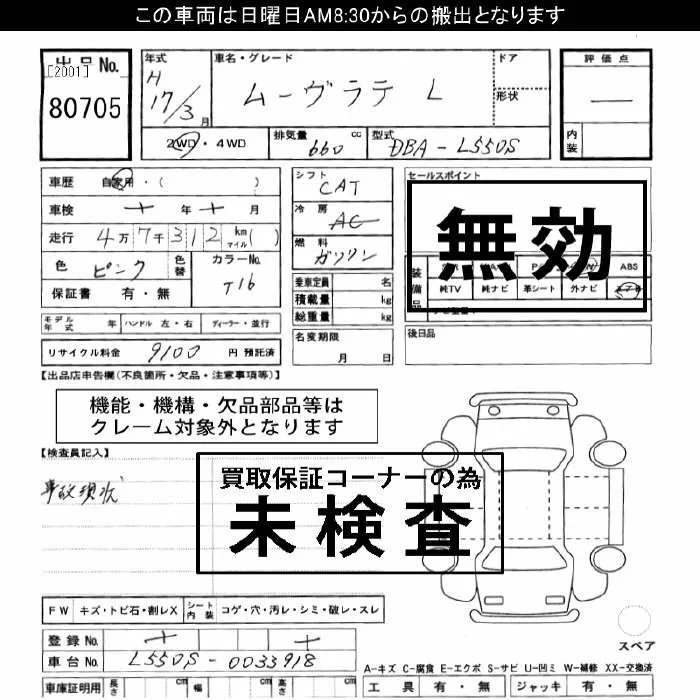 この車両は日曜日AM8:30からの搬出となります
出品No.
[2001]
80705
年式
H
17/3月
車名・グレード
ムーヴラテ L
ドア
形状
評価点
内装
2WD・4WD
排気量
660 cc
型式
DBA-L550S
車歴 自家用・( )
車検 年 月
走行 4万7千312 km
マイル( )
色
ピンク
色替
カラーNo.
T16
保証書 有・無
シフト
CAT
冷房
AC
燃料
ガソリン
乗車定員 名
積載量 kg
総重量 kg
名変期限
月 日
セールスポイント
無効
装備品
ABS
純TV 純ナビ 革シート 外ナビ
後日品
モデル年式 年 ハンドル 左・右 ディーラー・並行
リサイクル料金 9100 円 預託済
【出品店申告欄(不良箇所・欠品・注意事項等)】
機能・機構・欠品部品等は
クレーム対象外となります
【検査員記入】
事故現状
買取保証コーナーの為
未検査
FW キズ・トビ石・割レX シート内装 コゲ・穴・汚レ・シミ・破レ・スレ
登録No.
車台No. L550S-0033918
車庫証明用 長さ cm 幅 cm 高さ cm
スペア
A-キズ C-腐食 E-エクボ S-サビ U-凹ミ W-補修 XX-交換済
工具 有・無 ジャッキ 有・無